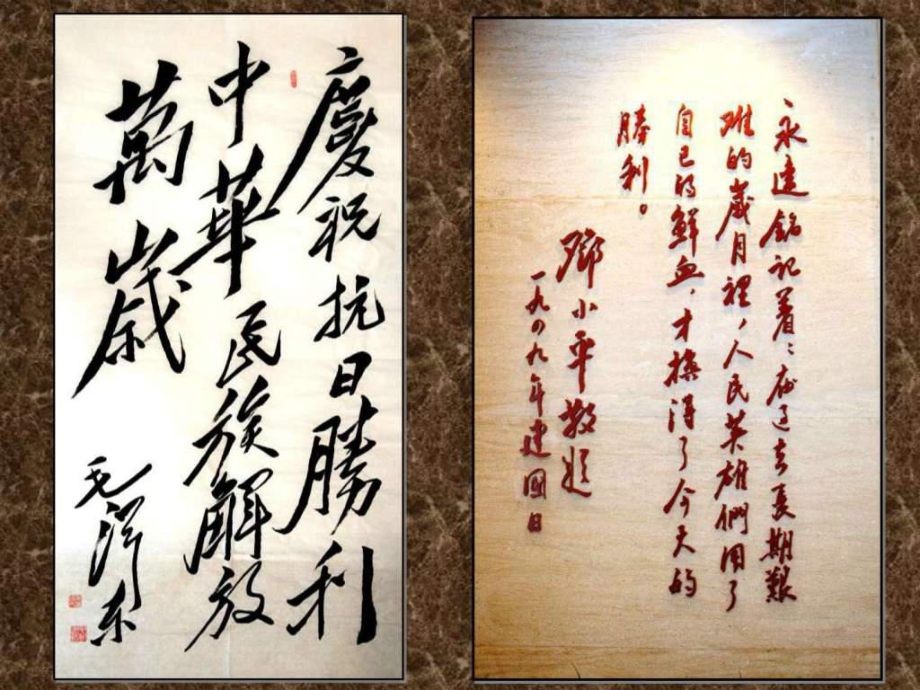 慶祝抗日勝利
中華民族解放
萬歲
毛澤东
永遠銘记着：在过去長期艱
难的嵗月裡，人民英雄們用了
自已的鮮血，才換得了今天的
勝利。
鄧小平敬题
一九四九年建國日